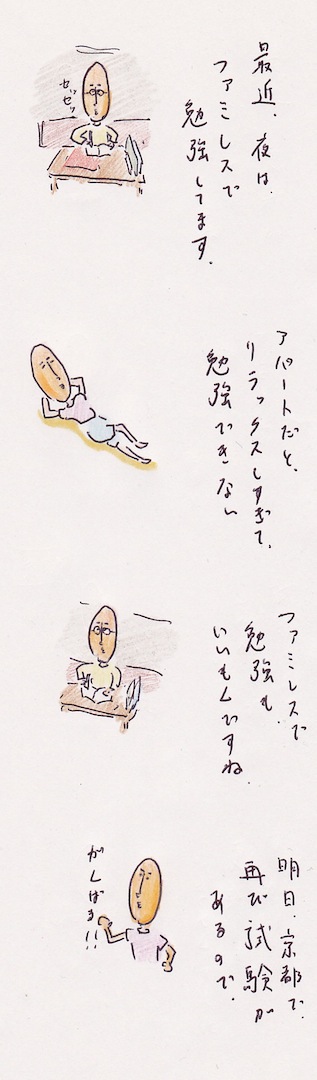 最近、夜は、
ファミレスで
勉強してます。
セッセッ
アパートだと、
リラックスしすぎて、
勉強できない
ファミレスで
勉強も
いいもんですね。
明日、京都で、
再び試験が
あるので、
がんばる!!